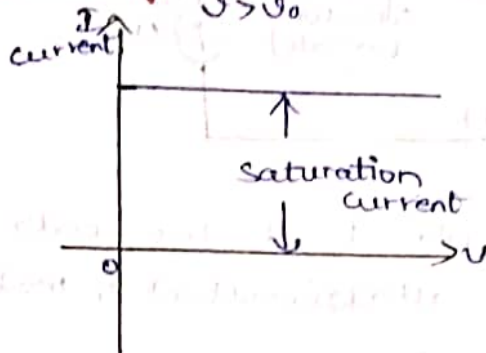 ν > ν₀
I
current
saturation
current
0
ν